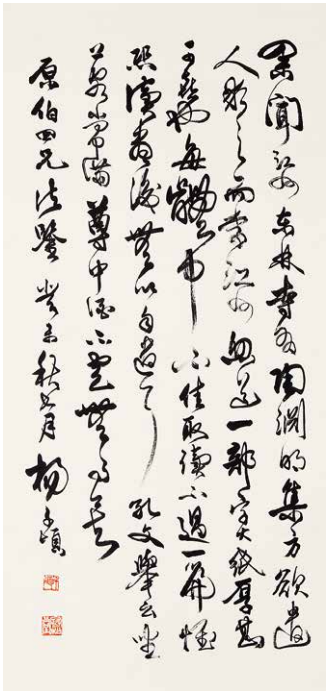 聞江州東林寺有陶淵明集方欲遣
人求之而李江州忽送一部字大紙厚甚
可喜也每體中不佳取讀不過一篇惟
恐讀盡後無以自遣耳孔文舉云坐
上客常滿尊中酒不空吾無事矣
原伯四兄法鑒癸未秋月楊